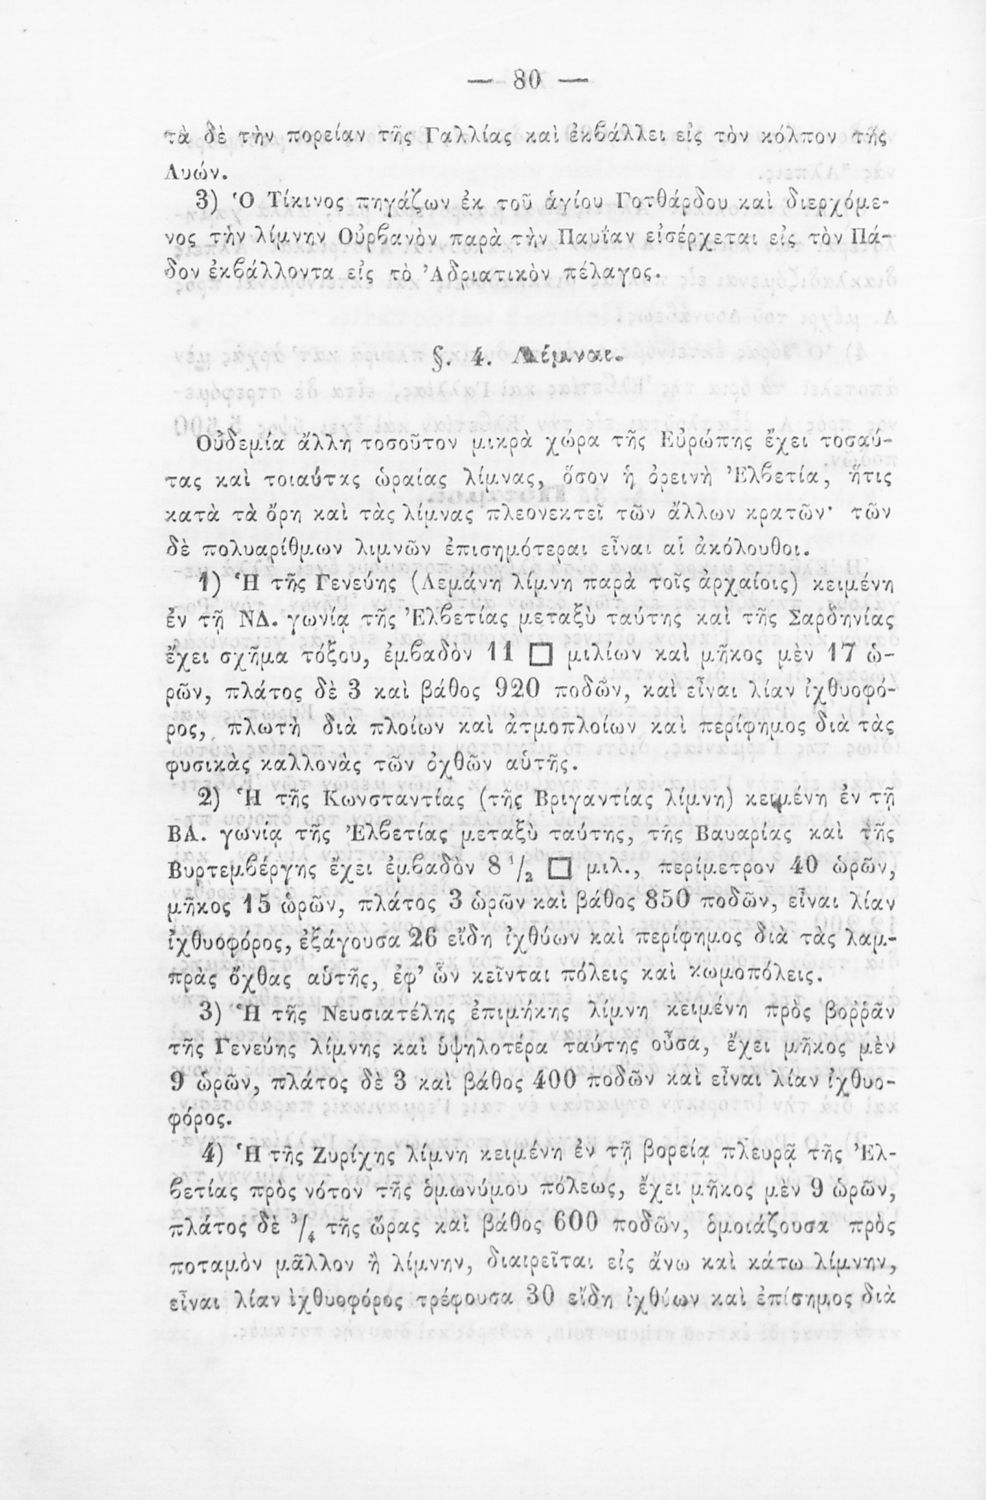 — 80 —
τὰ δὲ τὴν πορείαν τῆς Γαλλίας καὶ ἐκβάλλει εἰς τὸν κόλπον τῆς
Λυών.
3) Ὁ Τίκινος πηγάζων ἐκ τοῦ ἁγίου Γοτθάρδου καὶ διερχόμε-
νος τὴν λίμνην Οὐρβανὸν παρὰ τὴν Παυΐαν εἰσέρχεται εἰς τὸν Πά-
δον ἐκβάλλοντα εἰς τὸ Ἀδριατικὸν πέλαγος.
§. 4. Λίμναι.
Οὐδεμία ἄλλη τοσοῦτον μικρὰ χώρα τῆς Εὐρώπης ἔχει τοσαύ-
τας καὶ τοιαύτας ὡραίας λίμνας, ὅσον ἡ ὀρεινὴ Ἐλβετία, ἥτις
κατὰ τὰ ὄρη καὶ τὰς λίμνας πλεονεκτεῖ τῶν ἄλλων κρατῶν· τῶν
δὲ πολυαρίθμων λιμνῶν ἐπισημότεραι εἶναι αἱ ἀκόλουθοι.
1) Ἡ τῆς Γενεύης (Λεμάνη λίμνη παρὰ τοῖς ἀρχαίοις) κειμένη
ἐν τῇ ΝΔ. γωνίᾳ τῆς Ἐλβετίας μεταξὺ ταύτης καὶ τῆς Σαρδηνίας
ἔχει σχῆμα τόξου, ἐμβαδὸν 11 □ μιλίων καὶ μῆκος μὲν 17 ὡ-
ρῶν, πλάτος δὲ 3 καὶ βάθος 920 ποδῶν, καὶ εἶναι λίαν ἰχθυοφό-
ρος, πλωτὴ διὰ πλοίων καὶ ἀτμοπλοίων καὶ περίφημος διὰ τὰς
φυσικὰς καλλονὰς τῶν ὀχθῶν αὑτῆς.
2) Ἡ τῆς Κωνσταντίας (τῆς Βριγαντίας λίμνη) κειμένη ἐν τῇ
ΒΑ. γωνίᾳ τῆς Ἐλβετίας μεταξὺ ταύτης, τῆς Βαυαρίας καὶ τῆς
Βυρτεμβέργης ἔχει ἐμβαδὸν 8 1/2 □ μιλ., περίμετρον 40 ὡρῶν,
μῆκος 15 ὡρῶν, πλάτος 3 ὡρῶν καὶ βάθος 850 ποδῶν, εἶναι λίαν
ἰχθυοφόρος, ἐξάγουσα 26 εἴδη ἰχθύων καὶ περίφημος διὰ τὰς λαμ-
πρὰς ὄχθας αὑτῆς, ἐφ’ ὧν κεῖνται πόλεις καὶ κωμοπόλεις.
3) Ἡ τῆς Νευσιατέλης ἐπιμήκης λίμνη κειμένη πρὸς βοῤῥᾶν
τῆς Γενεύης λίμνης καὶ ὑψηλοτέρα ταύτης οὖσα, ἔχει μῆκος μὲν
9 ὡρῶν, πλάτος δὲ 3 καὶ βάθος 400 ποδῶν καὶ εἶναι λίαν ἰχθυο-
φόρος.
4) Ἡ τῆς Ζυρίχης λίμνη κειμένη ἐν τῇ βορείᾳ πλευρᾷ τῆς Ἐλ-
βετίας πρὸς νότον τῆς ὁμωνύμου πόλεως, ἔχει μῆκος μὲν 9 ὡρῶν,
πλάτος δὲ 3/4 τῆς ὥρας καὶ βάθος 600 ποδῶν, ὁμοιάζουσα πρὸς
ποταμὸν μᾶλλον ἢ λίμνην, διαιρεῖται εἰς ἄνω καὶ κάτω λίμνην,
εἶναι λίαν ἰχθυοφόρος τρέφουσα 30 εἴδη ἰχθύων καὶ ἐπίσημος διὰ